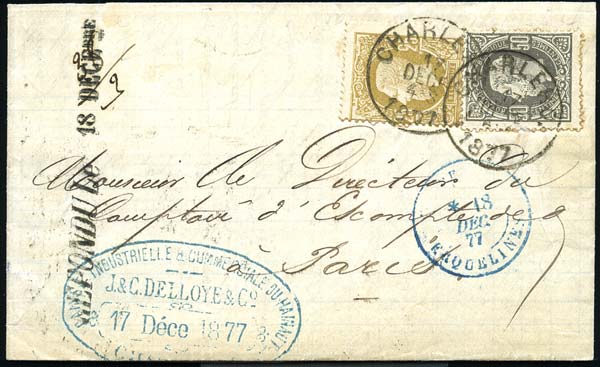 RÉPONDU LE 18 DÉCEMBRE
CHARLE
17
DEC
4
1877
CHARLE
1877
Monsieur le Directeur du
Comptoir d'Escompte de
à Paris
* 18
DEC
77
ERQUELINES
INDUSTRIELLE & COMMERCIALE DU HAINAUT
J.& C. DELLOYE & Co
17 Déce 1877